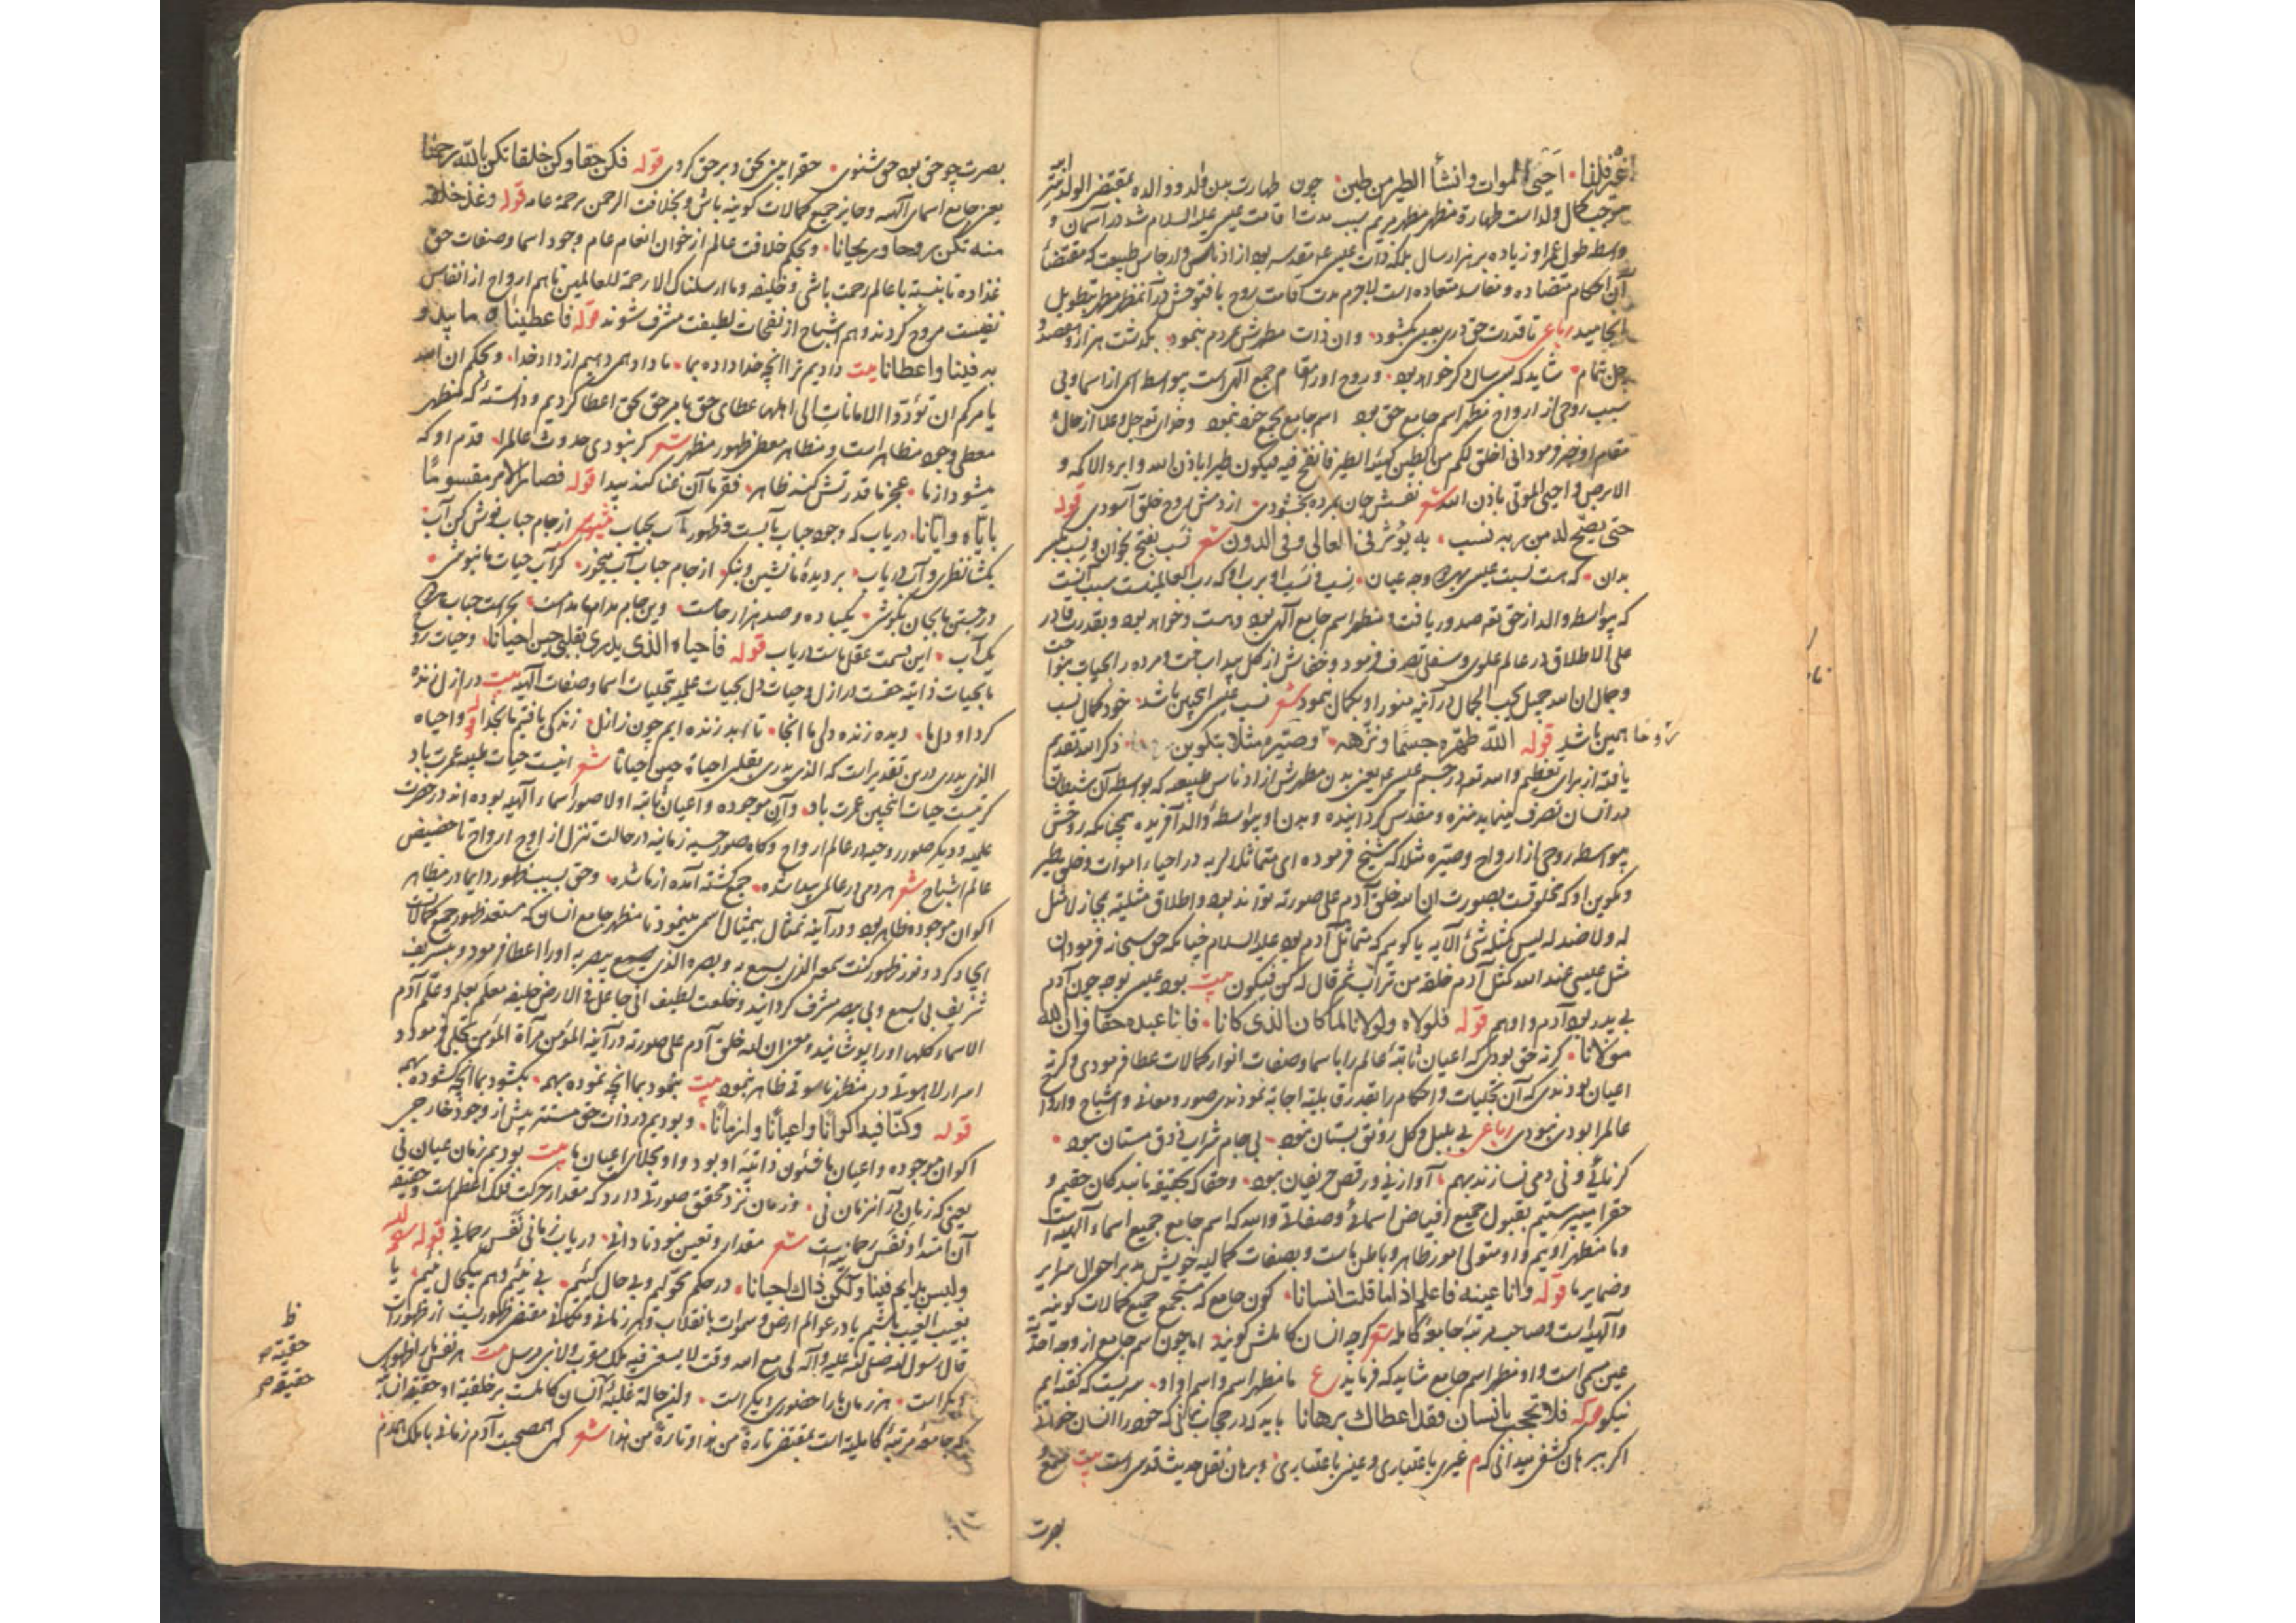 احیی الموات وانشأ الطیر من طین چون طهارت بدن ولد و والده بمقتضی الولد سر
موجب کمال ولد است طهارة مظهر مطهر مریم سبب مدت اقامت عیسی علیه السلام شد در آسمان و
واسطه طول عمر او زیاده بر هزار سال بلکه ذات عیسی مقدسه بود از ادناس و ارجاس طبیعت که مقتضاء
آن احکام متضاده و تفاسد متعاده است لاجرم مدت اقامت روح یافتو حش در آن مظهر مطهر بتطویل
انجامید رباعی تا قدرت حق دری بعیسی بگشود وان ذات مطهرش بمردم بنمود بگذشت هزار و
چل تمام شاید که بسی سال دکر خواهد بود و روح او را مقام جمع الهی است بیواسطه اسمی از اسما و بی
سبب روحی از ارواح مظهر اسم جامع حق بود اسم جامع بجمع خود نمود و خدای تع جل و علا از حال
مقام او خبر فرمود انی اخلق لکم من الطین کهیئة الطیر فانفخ فیه فیکون طیرا باذن الله و ابرء الاکمه و
الابرص و احیی الموتی باذن الله شعر نفسش جان بمرده بخشودی از دمش روح خلق آسودی قوله
حتی یصح له من ربه نسب به یؤثر فی العالی و فی الدون شعر نسب بفتح نخوان و نسب بکسر
بدان که هست نسبت عیسی بهر وجه عیان نسب و نسب او برب او که رب العالمینست سبب آنست
که بیواسطه والد از حق تع صدور یافت و مظهر اسم جامع الهی بود و هست و خواهد بود و بقدرت قادر
علی الاطلاق در عالم علوی و سفلی تصرف فرمود و خفاش از کل پیدا ساخت و مرده را بحیات بنواخت
و جمال ان الله جمیل یحب الجمال در آینه منور او بکمال نمود شعر نسب عیسی این باشد خود کمال نسب
همین باشد قوله الله طهره جسما ونزهه روحا وصیره مثلا بتکوین ذکر الله تقدیم
یافته از برای تعظیم و الله تع در جسم عیسی ع یعنی بدن مطهرش از ادناس طبیعه که بواسطه آن شیطان
در انسان تصرف مینماید منزه و مقدس گردانیده و بدن او بیواسطه والد آفریده همچنانکه روحش
بیواسطه روحی از ارواح و صیره مثلا که شیخ فرموده ای متماثلا لربه در احیاء اموات و خلق طیر
و تکوین او که مخلوقست بصورت ان الله خلق آدم علی صورته تواند بود و اطلاق مثلیته بمجاز لا مثل
له ولا ضد له لیس کمثله شئ الآیه یا گوییم که متماثل آدم بود علیه السلام چنانکه حق سبحانه فرمود ان
مثل عیسی عند الله کمثل آدم خلقه من تراب ثم قال له کن فیکون بیت بود عیسی بوجه چون آدم
بی پدر بود آدم و او هم قوله فلولاه ولولانا لما کان الذی کانا فانا عبده حقا وان الله
مولانا گر نه حق بودی که اعیان ثابته عالم را باسما و صفات انوار کمالات عطا فرمودی و گر نه
اعیان بودندی که آن تجلیات و احکام را بقدر قابلیة اجابة نمودندی صور و معانی و اشباح و ارواح
عالم را بودی نبودی رباعی بی بلبل و گل رونق بستان نبود بی جام شراب ذوق مستان نبود
گر نائی و نی دمی نسازند بهم آواز نی و رقص حریفان نبود و حقا که بحقیقه مابندکان حقیم و
حقرا میپرستیم بقبول جمیع افیاض اسمائی و صفاتی و الله که اسم جامع جمیع اسماء الهیه است
و ما مظهر اویم و او متولی امور ظاهر و باطن ماست و بصفات کمالیه خویش مدبر احوال سرایر
و ضمایر ما قوله وانا عینه فاعلم اذا ما قلت انسانا کون جامع که مستجمع جمیع کمالات کونیه
و الهیه است و صاحب مرتبه جامعه کامله شعر گرچه انسان کاملش گویند اما چون اسم جامع از وجه احدیة
عین مسمی است و او مظهر اسم جامع شاید که فرماید ع ما مظهر اسم و اسم او او سریست که گفته ایم
نیکو قوله فلا تحجب بانسان فقد اعطاک برهانا باید که در حجاب نمانی که خود را انسان خوانی
اکر ببرهان کشفی میدانی که م غیری باعتباری و عینی باعتباری و برهان نقل حدیث قدسی است بیت سمع و
بصرت
بصرت چو حق بود حق شنوی حقرا بین بحق و بر حق کروی قوله فکن حقا وکن خلقا تکن بالله رحمانا
یعنی جامع اسماء الهیه و حایز جمیع کمالات کونیه باش و بخلافت الرحمن رحمة عامه قوله وغذ خلقه
منه تکن روحا وریحانا و بحکم خلافت عالم از خوان انعام عام وجود اسما و صفات حق
غذا ده تا نسبته با عالم رحمت باشی و خلیفه و ما ارسلناک الا رحمة للعالمین تا هم ارواح از انفاس
نفیست مروح گردند و هم اشباح از نفحات لطیفت مشرف شوند قوله فاعطیناه ما یبدو
به فینا واعطانا بیت دادیم ترا آنچه خدا داده بما ما داد همی دهیم از داد خدا و بحکم ان الله
یامرکم ان تؤدوا الامانات الی اهلها عطای حق بما بر حق بحق اعطا کردیم و دانسته که مظهر
معطی وجود مظاهر است و مظاهر معطی ظهور مظهر شعر گر نبودی حدوث عالم را قدم او که
میشود از ما عجز ما قدرتش کند ظاهر فقر ما آن غنا کند پیدا قوله فصار الامر مقسوما
بایاه وایانا دریاب که وجود حباب بآبست و ظهور آب بحباب مثنوی از جام حباب نوش کن آب
بگشا نظری و آب دریاب بر دیده ما نشین و بنکر از جام حباب آب میخور کر آب حیات ما بنوشی
در جستن ما بجان بکوشی یکباده و صد هزار جامست وین جام مدام ما مدامست بحر است حباب
یک آب این قسمت عقل ماست دریاب قوله فاحیاه الذی یدری بقلبی حین احیانا و حیات روح
ما بحیات ذاتیه حقست در ازل و حیات دل بحیات علمیه بتجلیات اسما و صفات الهیه بیت در ازل زنده
کرد او دل ما دیده زنده دلی ما انجا تا ابد زنده ایم چون ز ازل زندکی یافتیم ما بخدا قوله و احیاه
الذی یدری درین تقدیر است که الذی یدری بقلبی احیاه حین احیانا شعر اینست حیات طیبه عمرت باد
کر نیست حیات اینچنین عمرت باد و آن موجوده و اعیان ثابته اولا صور اسماء الهیه بوده اند در حضرت
علمیه و دیگر صور روحیه در عالم ارواح و کاه صور حسیه زمانیه در حالت تنزل از اوج ارواح تا حضیض
عالم اشباح شعر هر دمی در عالمی پیدا شده جمع گشته آمده از ما شده و حق بسبب ظهور دایما در مظاهر
اکوان موجوده ظاهر بود و در آینه تمثال بیمثال اسمی مینمود تا مظهر جامع انسان که مستعد ظهور جمیع کمالات
ایجاد کرد و نور ظهور کنت سمعه الذی یسمع به و بصره الذی یبصر به او را اعطا فرمود و بتشریف
شریف بی یسمع و بی یبصر مشرف گردانید و خلعت لطیف انی جاعل فی الارض خلیفه معلم بعلم و علم آدم
الاسماء کلها او را پوشانید و معنی ان الله خلق آدم علی صورته در آینه المؤمن مرآة المؤمن تجلی فرمود و
اسرار لاهوتی در مظاهر ناسوتی ظاهر نمود بیت بنمود بما آنچه نموده بهمه بگشود بما آنچه گشوده بهمه
قوله وکنا فیه اکوانا واعیانا وازمانا و بودیم در ذات حق مستتر پیش از وجود خارجی
اکوان موجوده و اعیان ما شئون ذاتیه او بود و او مجلای اعیان ما بیت بودیم زمان عیان نی
یعنی که زمان در آنزمان نی و زمان نزد محقق صورتی دارد که مقدار حرکت فلک اعظم است و حقیقة
آن امتداد نفس رحمانیه است شعر مقدار و تعین نبود تا دانی دریاب زمانی نفس رحمانی قوله
ولیس بدایم فینا ولکن ذاک احیانا در حکم محولیم و بی حال کنیم بی نیم و هم بیکحال نیم یا
بغیب الغیب باشیم یا در عوالم ارض و سموات بانقلابات هر زمانی و مکانی مقتضی ظهوریست از ظهورات
قال رسول الله صلی الله علیه و آله لی مع الله وقت لا یسعنی فیه ملک مقرب ولا نبی مرسل بیت هر نفس ما را ظهوری
دیگر است هر زمان ما را حضوری دیگر است و این حالة غلبه انسان کاملست بر خلقیة او حقیقة انسانیه
که جامعه مرتبه کاملیه است بمقتضی تارة من هذا و تارة من هذا شعر گهی همصحبت آدم زمانی با ملک همدم
ظ
حقیقة
حقیقة